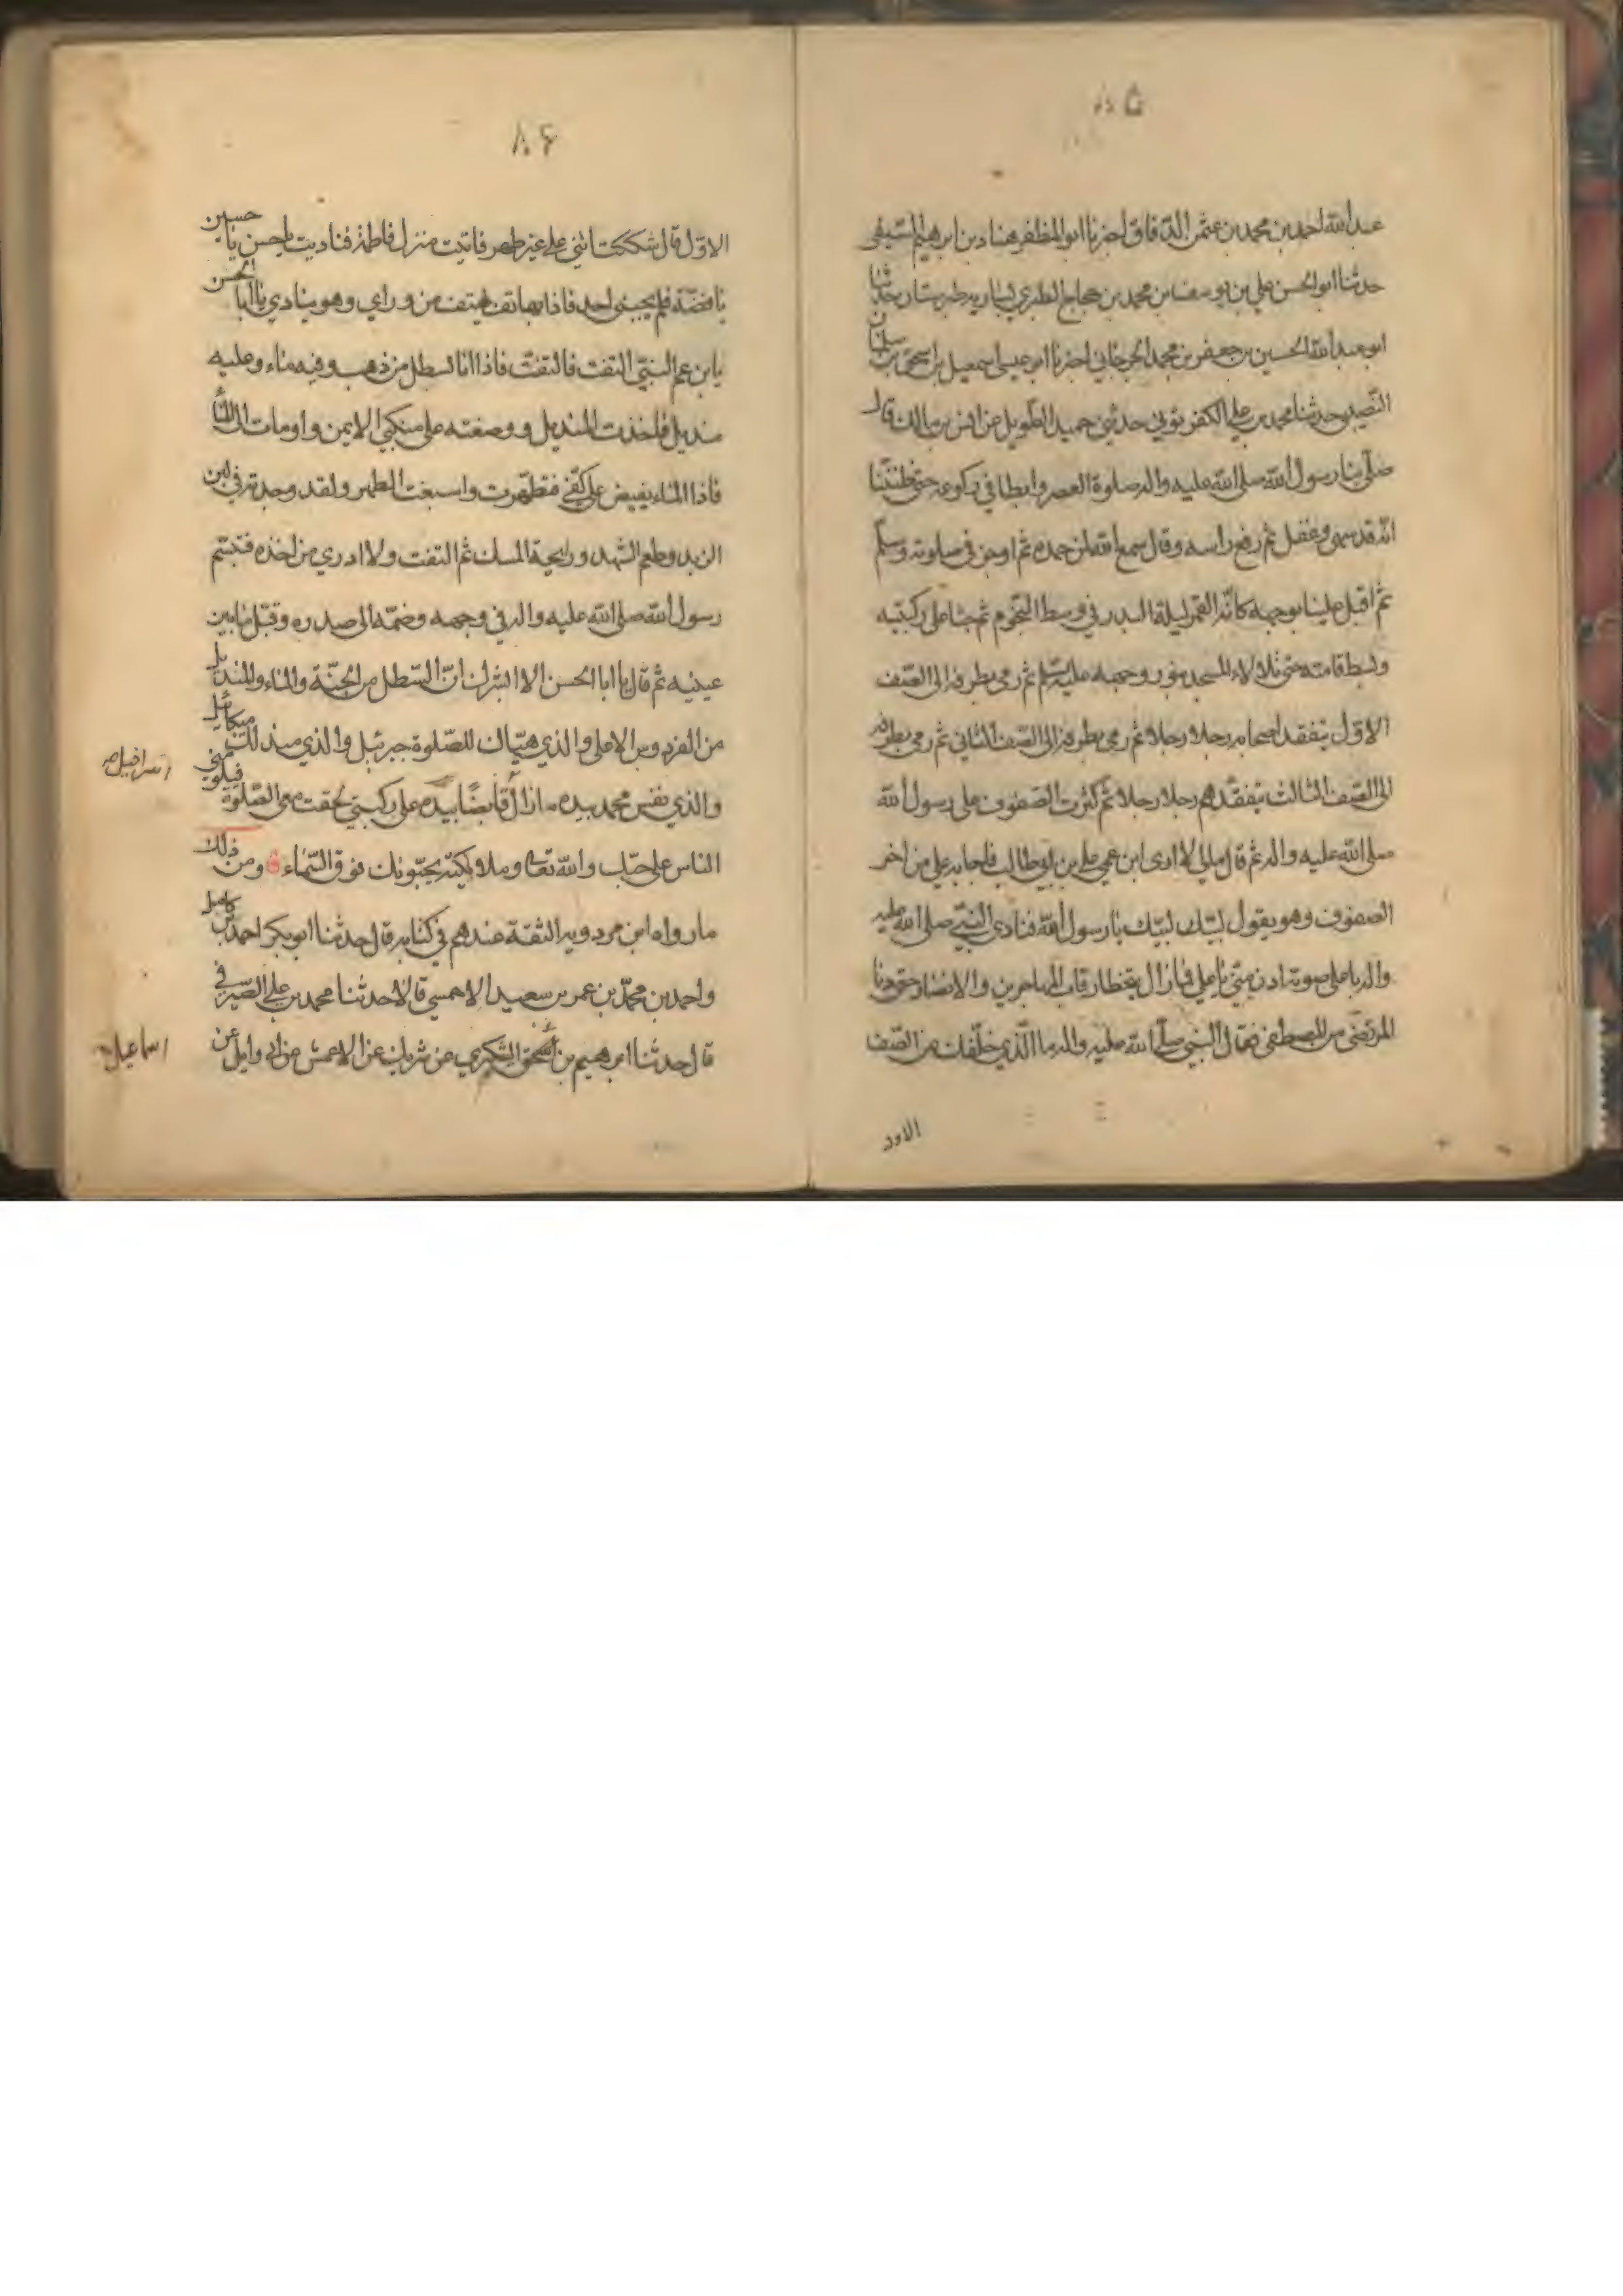 ٨٥
عبد الله احمد بن محمد بن عثمن الدقاق اخبرنا ابو المظفر هناد بن ابرهيم النسفي
حدثنا ابو الحسن علي بن يوسف بن محمد بن حجاج الطبري بساريه طبرستان حدثنا
ابو عبد الله الحسين بن جعفر بن محمد الجرجاني اخبرنا ابو عيسى اسمعيل بن اسحق بن سليمان
النصيبي حدثنا محمد بن علي الكفرتوثي حدثني حميد الطويل عن انس بن مالك قال
صلى بنا رسول الله صلى الله عليه واله صلوة العصر وابطا في ركوعه حتى ظننا
انه قد سهى وغفل ثم رفع راسه وقال سمع الله لمن حمده ثم اوجز في صلوته وسلم
ثم اقبل علينا بوجهه كانه القمر ليلة البدر في وسط النجوم ثم جثا على ركبتيه
وبسط قامته حتى تلالاء المسجد بنور وجهه عليه السلم ثم رمى بطرفه الى الصف
الاول يتفقد اصحابه رجلا رجلا ثم رمى بطرفه الى الصف الثاني ثم رمى بطرفه
الى الصف الثالث يتفقدهم رجلا رجلا ثم كثرت الصفوف على رسول الله
صلى الله عليه واله ثم قال مالي لا ارى ابن عمي علي بن ابي طالب فاجابه علي من اخر
الصفوف وهو يقول لبيك لبيك يا رسول الله فنادى النبي صلى الله عليه
واله باعلى صوته ادن مني يا علي فما زال يتخطا رقاب المهاجرين والانصار حتى دنا
المرتضى من المصطفى فقال النبي صلى الله عليه واله ما الذي خلفك عن الصف
الاول
٨۶
الاول قال شككت انني على غير طهر فاتيت منزل فاطمة فناديت يا حسن يا حسين
يا فضة فلم يجبني احد فاذا بهاتف يهتف من وراي وهو ينادي يا ابا الحسن
يا بن عم النبي التفت فالتفت فاذا انا بسطل من ذهب وفيه ماء وعليه
منديل فاخذت المنديل ووضعته على منكبي الايمن واومات الى الماء
فاذا الماء يفيض على كفي فتطهرت واسبغت الطهر ولقد وجدته في لين
الزبد وطعم الشهد ورايحة المسك ثم التفت ولا ادري من اخذه فتبسم
رسول الله صلى الله عليه واله في وجهه وضمه الى صدره وقبل ما بين
عينيه ثم قال يا ابا الحسن الا ابشرك ان السطل من الجنة والماء والمنديل
من الفردوس الاعلى والذي هياك للصلوة جبرئيل والذي مندلك ميكائيل
اسرافيل
والذي نفس محمد بيده ما زال قابضا بيده على ركبتي لحقت معي الصلوة فيلومني
الناس على حبك والله تعالى وملائكته يحبونك فوق السماء ومن ذلك
ما رواه ابن مردويه الثقة عندهم في كتابه قال حدثنا ابو بكر احمد بن كامل
واحمد بن محمد بن عمر بن سعيد الاحمسي قالا حدثنا محمد بن علي الصيرفي
قال حدثنا ابرهيم بن اسحق اليشكري عن شريك عن الاعمش عن ابي وايل عن
اسماعيل